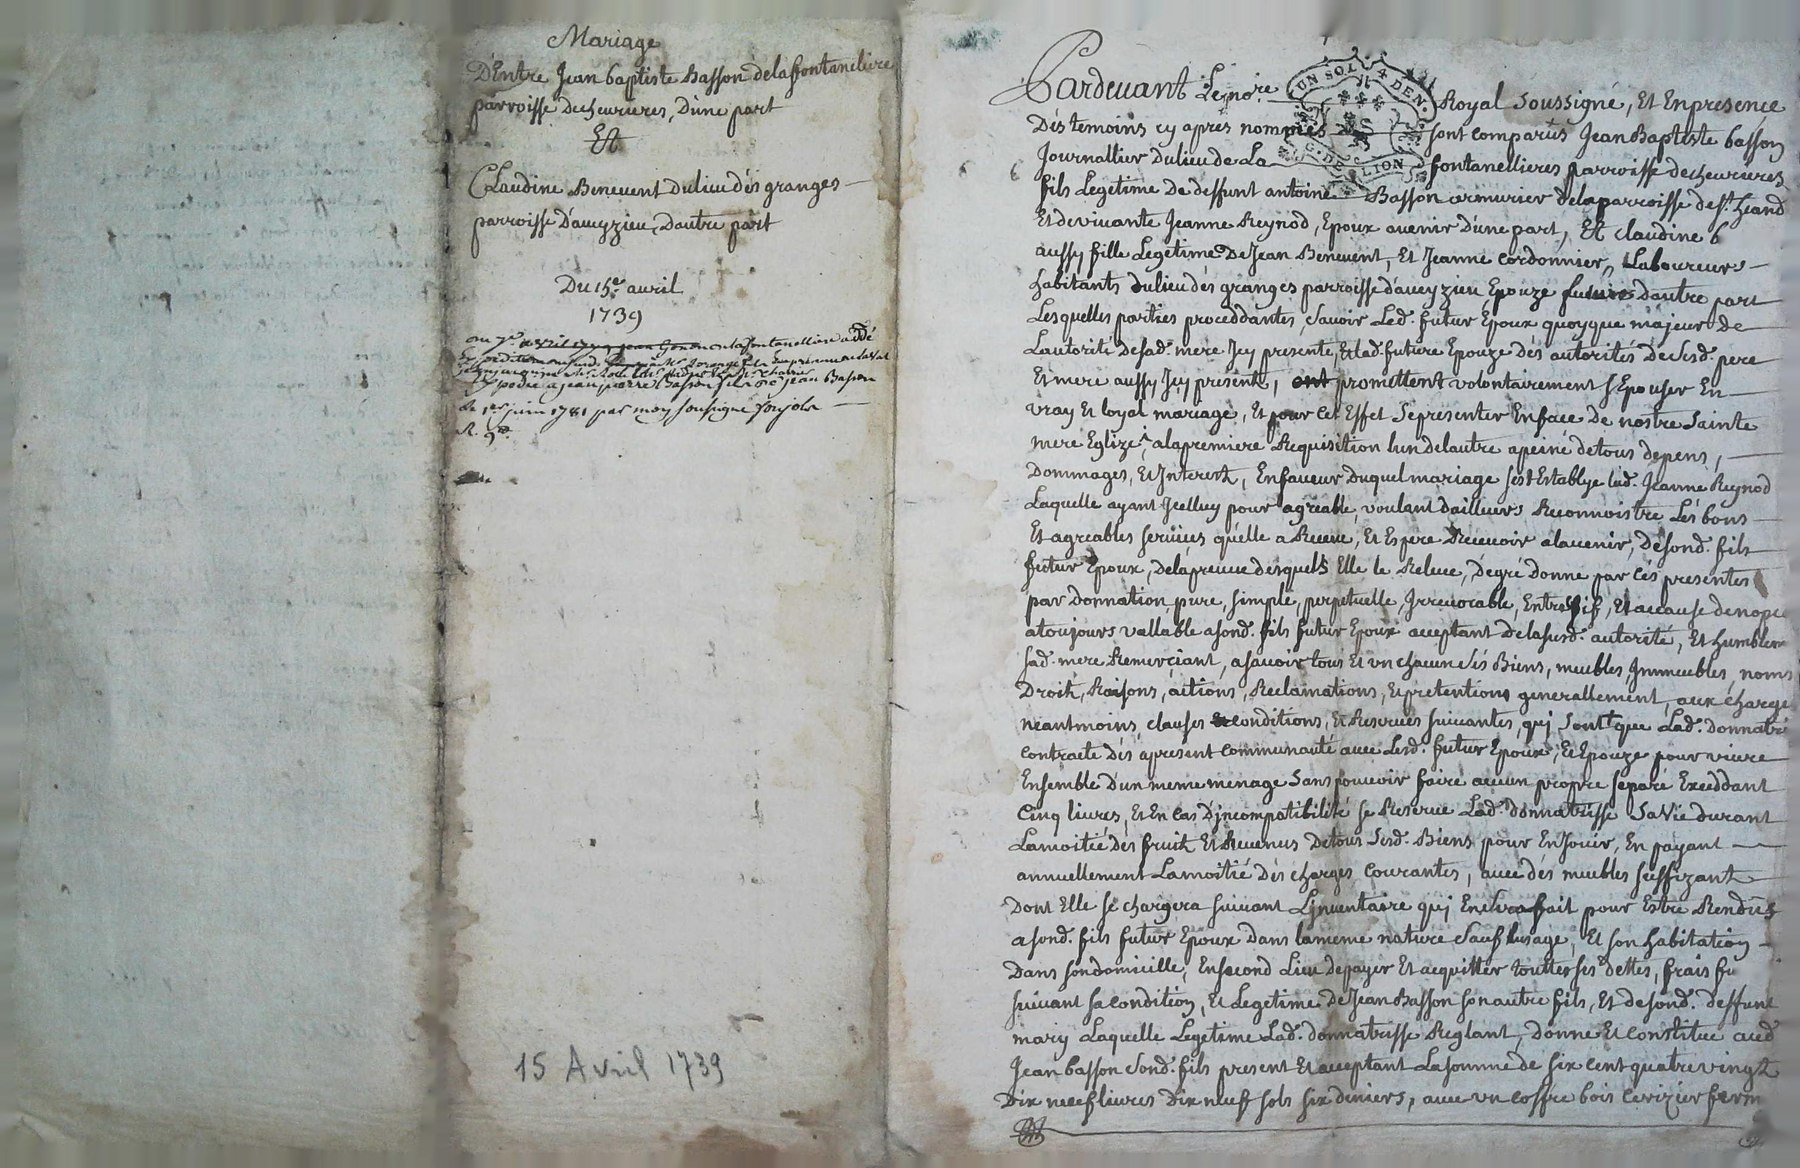 Mariage
D'Entre Jean baptiste Basson delafontaneliere
parroisse decheurieres, D'une part
Et
Claudine Benevent Dulieu dés granges
parroisse D'aveyzieu, Dautre part
Du 15e. avril
1739
a jean pierre Basson fils de jean Basson
Le 1er juin 1781 par moy soussigné
15 Avril 1739
Pardevant Le nore. Royal Soussigné, Et Enpresence
UN SOL 4 DEN.
Dés temoins cy apres nommés sont comparus Jean Baptiste basson
Journallier dulieu de La fontanellieres parroisse decheurieres
G. DE LION
fils Legitime de deffunt antoine Basson armurier delaparroisse de st. heand
Et devivante Jeanne Reynod, Epoux avenir D'une part, Et claudine b
aussy fille Legitime De Jean Benevent, Et Jeanne cordonnier, Laboureurs
habitants dulieu dés granges parroisse d'aveyzieu Epouze future Dautre part
Lesquelles parties proceddantes, Savoir Led. futur Epoux quoyque majeur de
Lautorité desad. mere Jcy presente, Et lad. future Epouze dés autorités de sesd. pere
Et mere aussy Jcy presents, ont promettent volontairement s'Epouser En
vray Et loyal mariage, Et pour cet Effet Sepresenter Enface De nostre Sainte
mere Eglize, alapremiere Requisition lun delautre apeine detous depens,
Dommages, Et Interest, Enfaveur Duquel mariage sest Establye lad. Jeanne Reynod
Laquelle ayant Jcelluy pour agreable, voulant dailleurs Reconnoistre Lés bons
Et agreables services qu'elle a Receu, Et Espere Recevoir alavenir, desond. fils
futur Epoux, delapreuve desquels Elle le Releve, Degré donne par cés presentes
par donnation pure, simple, perpetuelle, Irrevocable, Entrevifs, Et acause denopce
atoujours vallable asond. fils futur Epoux acceptant delasusd. autorité, Et humblem
sad. mere Remerciant, asavoir tous Et un chacun sés Biens, meubles, Immeubles, noms
Droits, Raisons, actions, Reclamations, Et pretentions generallement, aux charge
neantmoins, clauses conditions, Et Reserves suivantes, qui sont que Lad. Donnatri
contracte dés apresent communauté avec Lesd. futur Epoux, Et Epouze pour vivre
Ensemble D'un meme menage sans pouvoir faire aucun propre separé Exceddant
Cinq livres, Et En Cas D'jncompatibilité se Reserve Lad. donnatrisse Sa vie durant
Lamoitié dés fruits Et Revenus Detous Sesd. Biens pour En Jouir, En payant
annuellement Lamoitié dés charges courantes, avec dés meubles suffizants
Dont Elle se chargera suivant Ljnventaire qui En sera fait pour Estre Rendus
a sond. fils futur Epoux dans lameme nature Sauf lusage, Et son habitation
Dans sondomicille, Ensecond Lieu depayer Et acquitter touttes ses dettes, frais fu
suivant sa condition, Et Legitime de Jean Basson sonautre fils, Et desond. deffunt
mary Laquelle Legitime Lad. donnatrisse Reglant, Donne Et constitue aud
Jean basson Sond. fils present Et acceptant Lasomme de six cent quatre vingt
Dix neuf livres Dix neuf sols six deniers, avec un coffre bois cerizier ferm